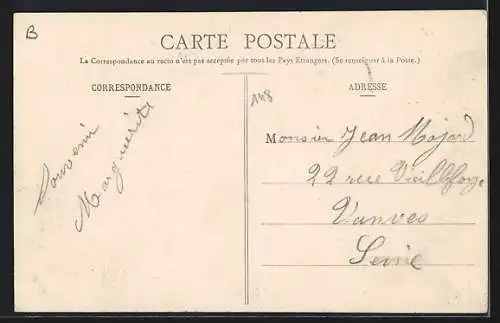 B
CARTE POSTALE
La Correspondance au recto n'est pas acceptée par tous les Pays Etrangers. (Se renseigner à la Poste.)
CORRESPONDANCE
Souvenir
Marguerite
148
ADRESSE
Monsieur Jean Majard
22 rue Vieille forge
Vanves
Seine